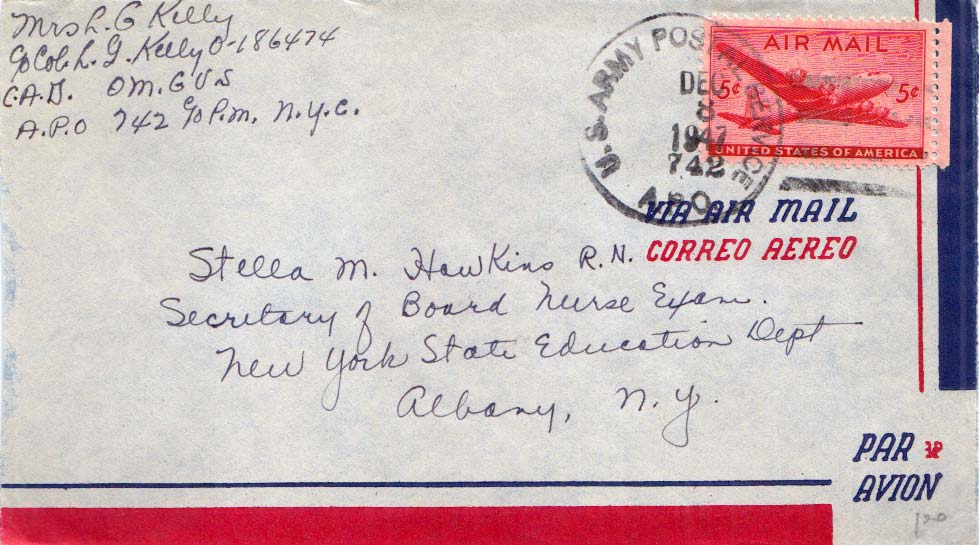 Mrs L. G Kelly
c/o Col. L. G. Kelly O-186474
C.A.D. OM.G US
A.P.O 742 c/o P.m. N.Y.C.
U.S. ARMY POSTAL SERVICE
DEC
8
1947
742
A.P.O.
AIR MAIL
5¢ 5¢
UNITED STATES OF AMERICA
VIA AIR MAIL
CORREO AEREO
Stella M. Hawkins R.N.
Secretary of Board Nurse Exam.
New York State Education Dept
Albany, N.Y.
PAR
AVION